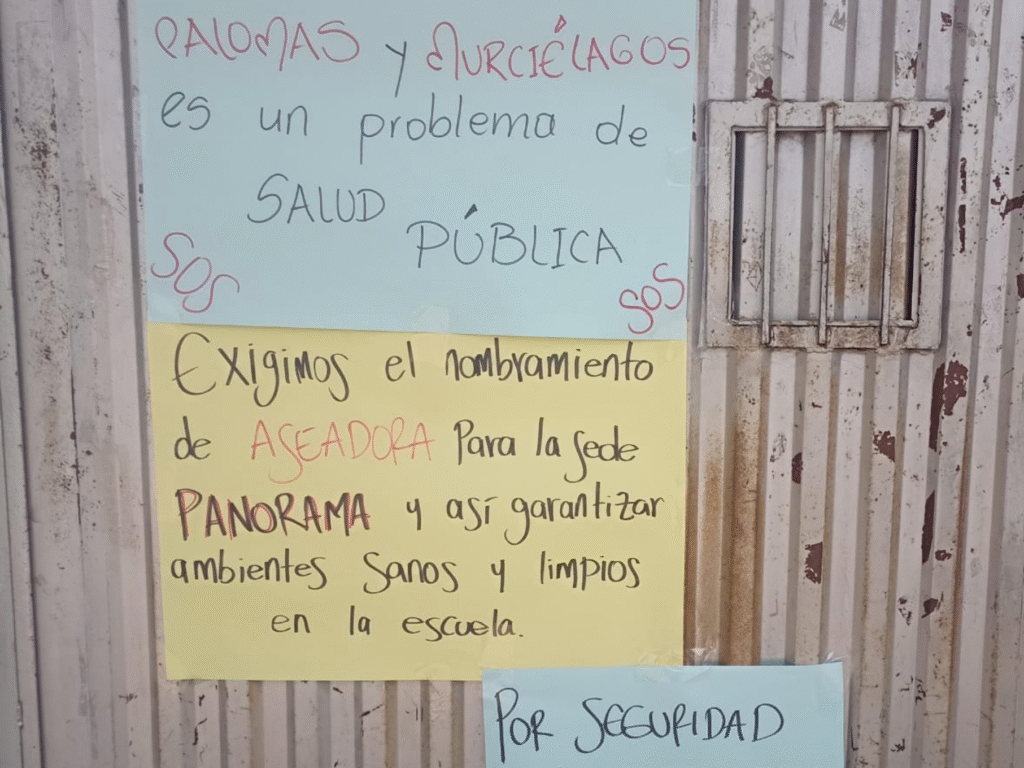 PALOMAS y MURCIÉLAGOS
es un problema de
SALUD
PÚBLICA
SOS
SOS
Exigimos el nombramiento
de ASEADORA Para la sede
PANORAMA y así garantizar
ambientes Sanos y limpios
en la escuela.
POR SEGURIDAD